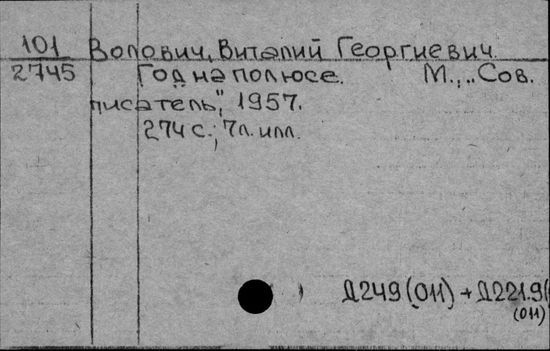 101 Волович, Виталий Георгиевич
2745 Год на полюсе. М., „Сов.
писатель", 1957.
274 с.; 7 л. илл.
Д249(011) + Д221.9(
(011)